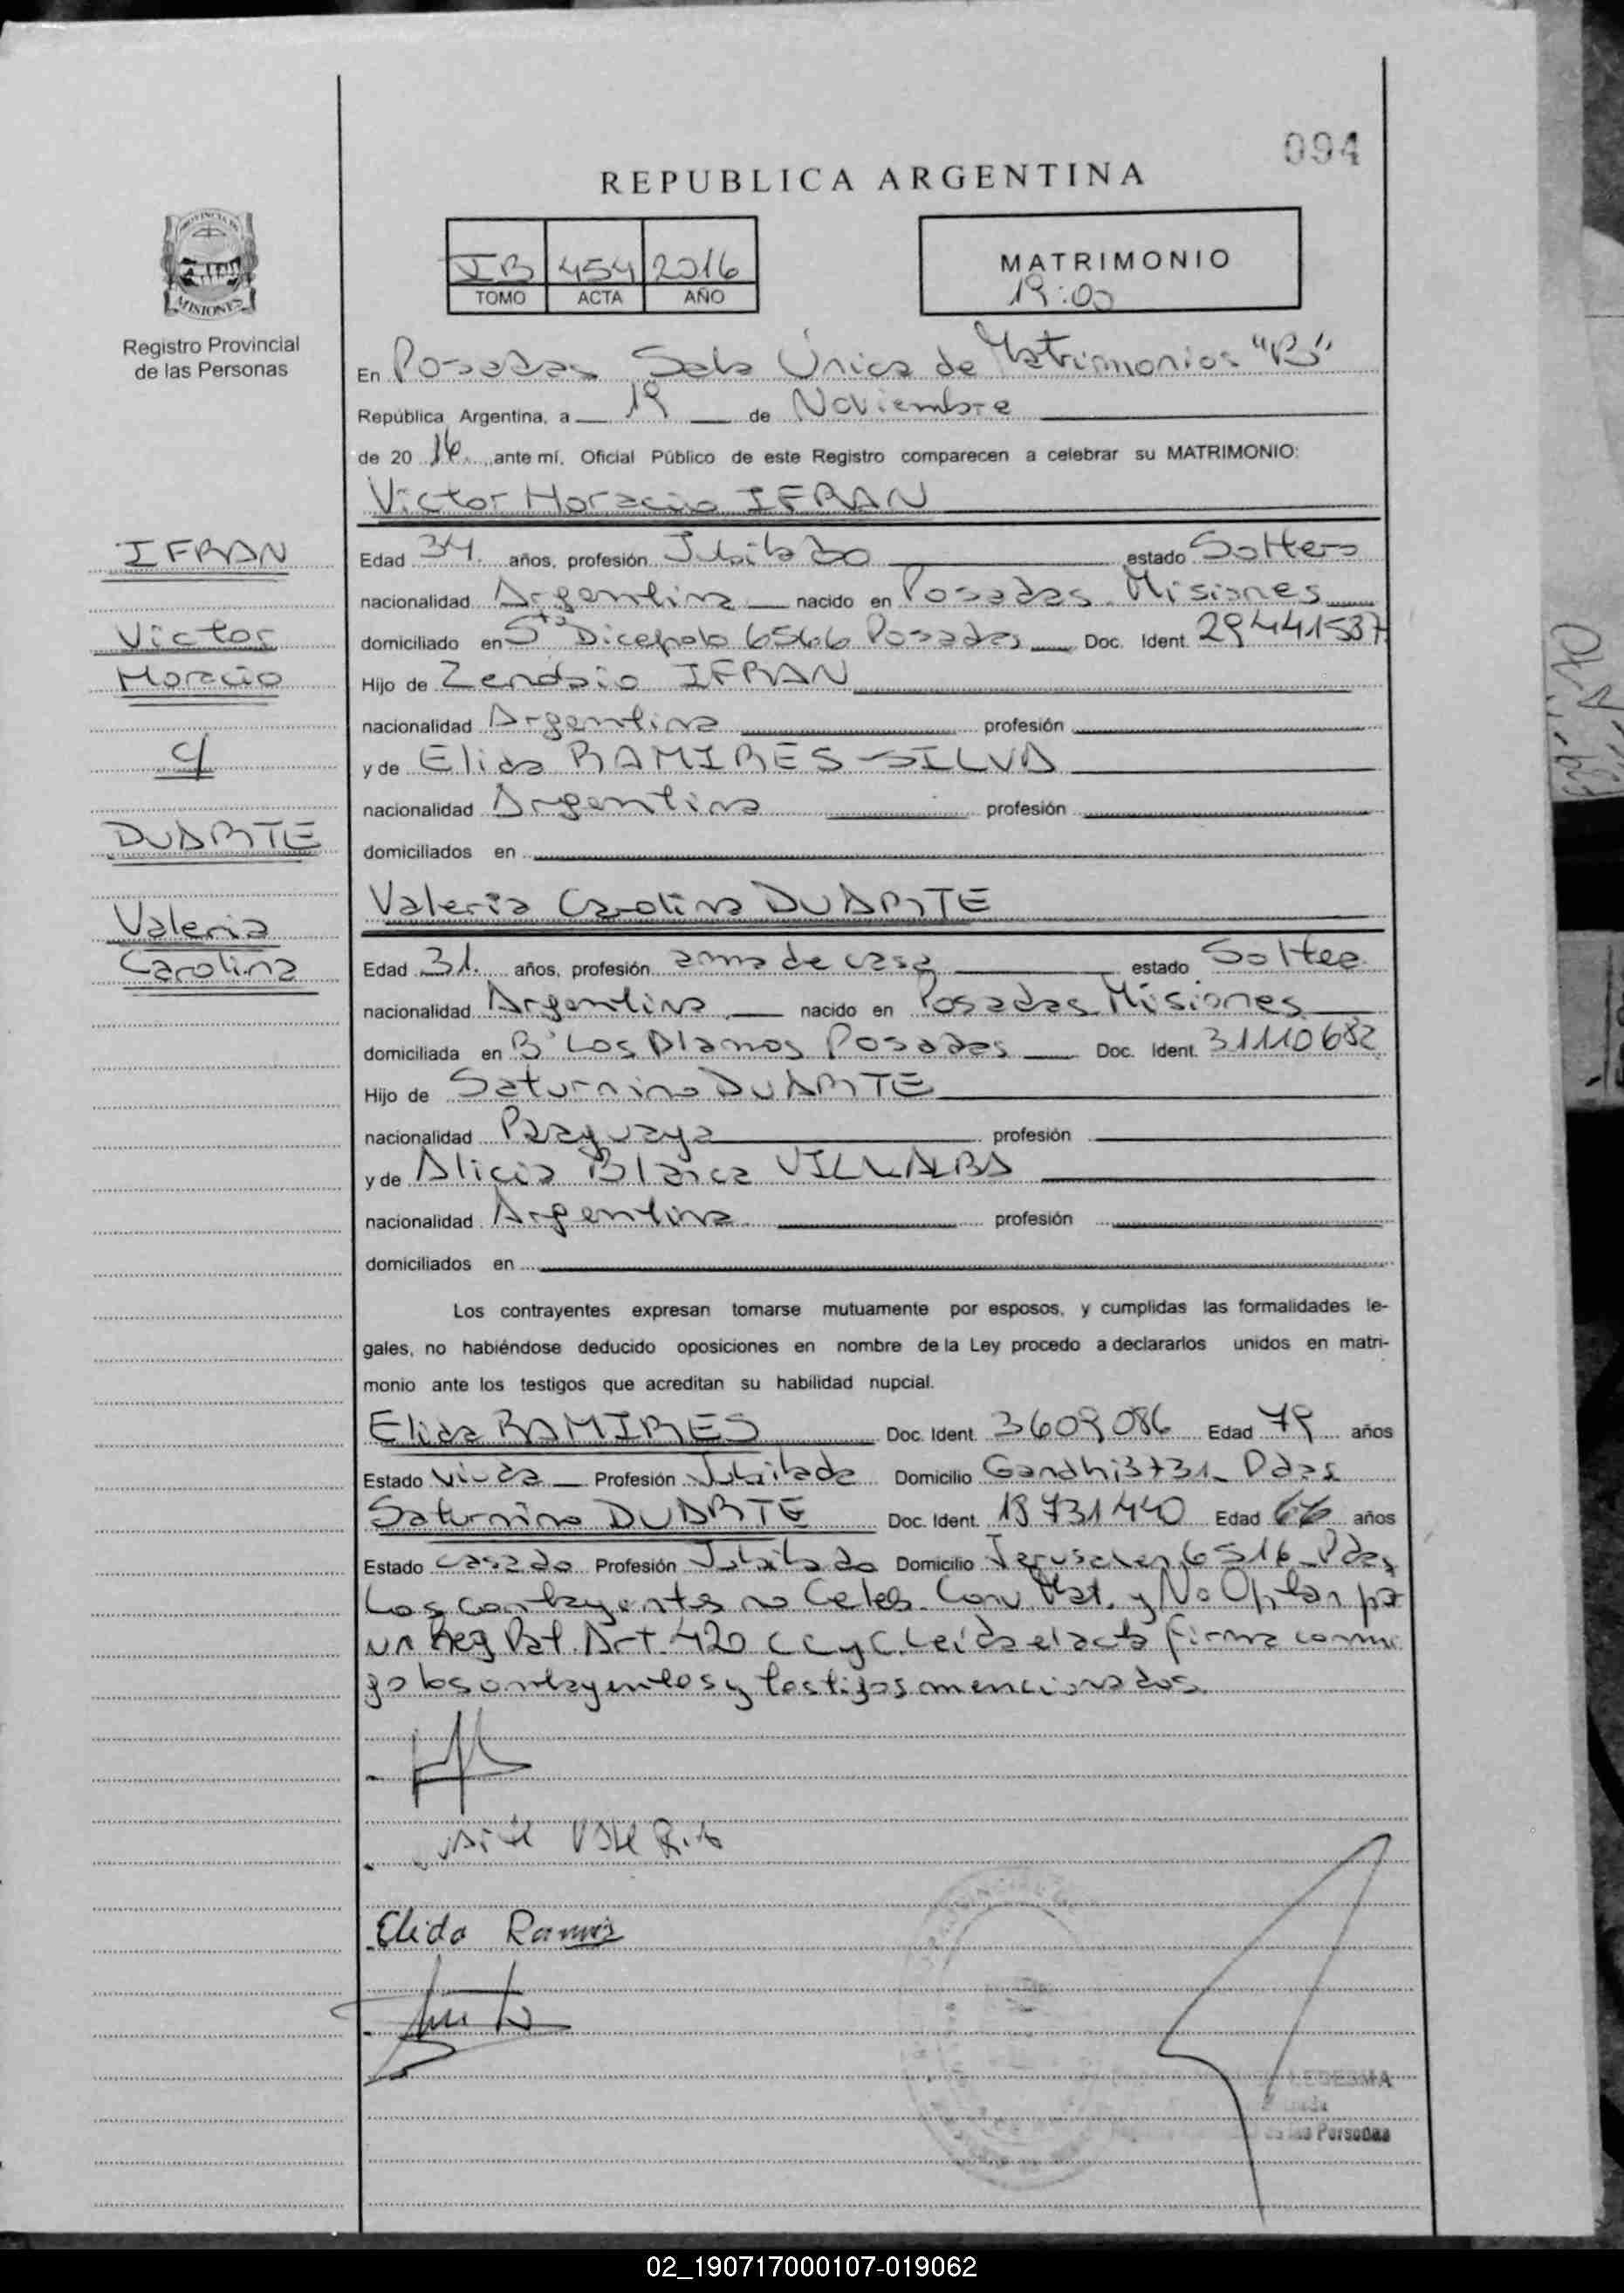 094
REPUBLICA ARGENTINA
454 2016
TOMO ACTA AÑO
MATRIMONIO
19:00
PROVINCIA DE
MISIONES
Registro Provincial
de las Personas
En Posadas Sala Única de Matrimonios "B"
República Argentina, a 19 de Noviembre
de 20 16 ante mí, Oficial Público de este Registro comparecen a celebrar su MATRIMONIO:
Victor Horacio IFRAN
IFRAN
Victor
Horacio
c/
DUARTE
Valeria
Carolina
Edad 34 años, profesión Jubilado estado Soltero
nacionalidad Argentina nacido en Posadas Misiones
domiciliado en Dicepolo 6566 Posadas Doc. Ident. 29441537
Hijo de IFRAN
nacionalidad Argentina profesión
y de Elida RAMIRES SILVA
nacionalidad Argentina profesión
domiciliados en
Valeria Carolina DUARTE
Edad 31 años, profesión ama de casa estado Soltera
nacionalidad Argentina nacido en Posadas Misiones
domiciliada en Bº Los Alamos Posadas Doc. Ident. 31110682
Hijo de Saturnino DUARTE
nacionalidad Paraguaya profesión
y de Alicia Blanca VILLALBA
nacionalidad Argentina profesión
domiciliados en
Los contrayentes expresan tomarse mutuamente por esposos, y cumplidas las formalidades le-
gales, no habiéndose deducido oposiciones en nombre de la Ley procedo a declararlos unidos en matri-
monio ante los testigos que acreditan su habilidad nupcial.
Elida RAMIRES Doc. Ident. 3609086 Edad 79 años
Estado Viuda Profesión Jubilada Domicilio Gandhi 3731 Pdas
Saturnino DUARTE Doc. Ident. 18731440 Edad 66 años
Estado Casado Profesión Jubilado Domicilio Jerusalen 6516 Pdas
Los contrayentes no Celeb. Conv. Mat. y No Optan por
un Reg Pat. Art. 420 CCyC. Leída el acta firma conmi
go los contrayentes y testigos mencionados.
Elida Ramires
LEDESMA
de las Personas
02_190717000107-019062